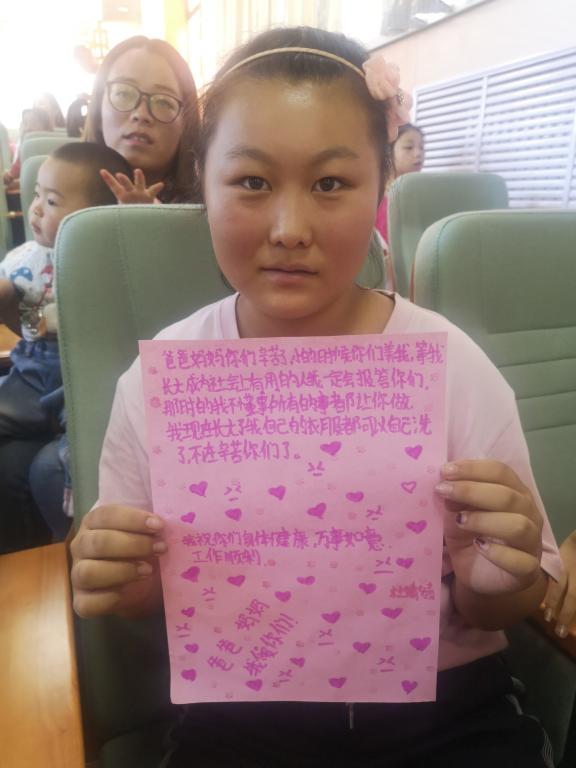 爸爸妈妈你们辛苦了,小的时候你们养我,等我
长大成为社会上有用的人我一定会报答你们,
那时的我不懂事所有的事都让你做
我现在长大了我自己的衣服都可以自己洗
了,不在辛苦你们了。
我祝你们身体健康,万事如意.
工作顺利
爸爸 妈妈
我爱你们!